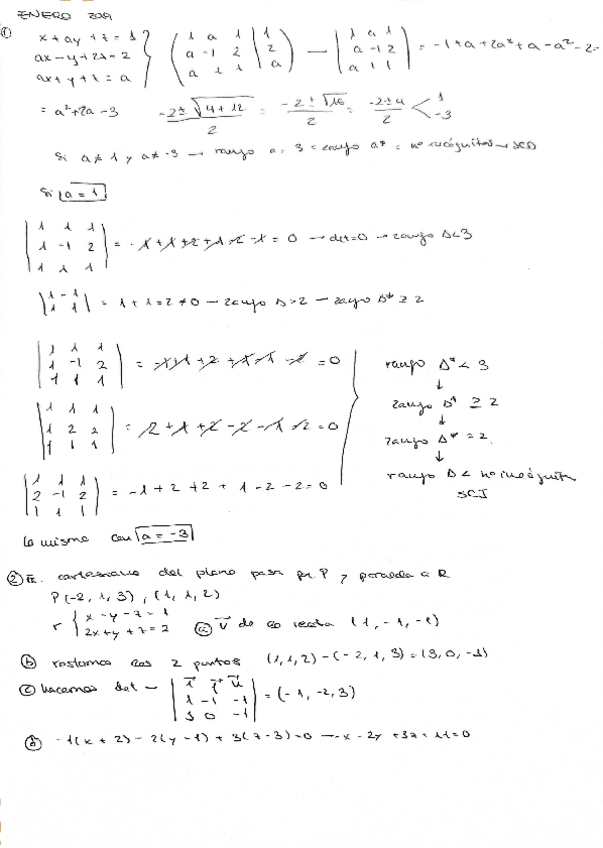 ENERO 2019
① x + ay + z = 1
ax - y + 2z = 2
ax + y + z = a
( 1 a 1 | 1
a -1 2 | 2
a 1 1 | a ) — | 1 a 1
a -1 2
a 1 1 | = -1 + a + 2a² + a - a² - 2
= a² + 2a - 3   -2 ± √4 + 12 / 2 = -2 ± √16 / 2 = -2 ± 4 / 2 < 1
-3
Si a ≠ 1 y a ≠ -3 → rango a = 3 = rango a* = no incógnitas → SCD
Si a = 1
| 1 1 1
1 -1 2
1 1 1 | = -1 + 1 + 2 + 1 - 2 - 1 = 0 → det = 0 → rango A < 3
| 1 -1
1 1 | = 1 + 1 = 2 ≠ 0 → rango A = 2 → rango A* ≥ 2
| 1 1 1
1 -1 2
1 1 1 | = -1 + 1 + 2 + 1 - 1 - 2 = 0
| 1 1 1
1 2 2
1 1 1 | = 2 + 1 + 2 - 2 - 1 - 2 = 0
| 1 1 1
2 -1 2
1 1 1 | = -1 + 2 + 2 + 1 - 2 - 2 = 0
rango A* < 3
↓
rango A* ≥ 2
↓
rango A* = 2
↓
rango A < no incógnita
SCI
lo mismo con a = -3
② Ec. cartesiana del plano pasa por P y paralela a R
P(-2, 1, 3), (1, 1, 2)
r { x - y - z = 1
2x + y + z = 2   ⓐ v⃗ de la recta (1, -1, -1)
ⓑ restamos los 2 puntos (1, 1, 2) - (-2, 1, 3) = (3, 0, -1)
ⓒ hacemos det → | i⃗ j⃗ u⃗
1 -1 -1
3 0 -1 | = (-1, -2, 3)
ⓓ -1(x + 2) - 2(y - 1) + 3(z - 3) = 0 → -x - 2y + 3z - 11 = 0